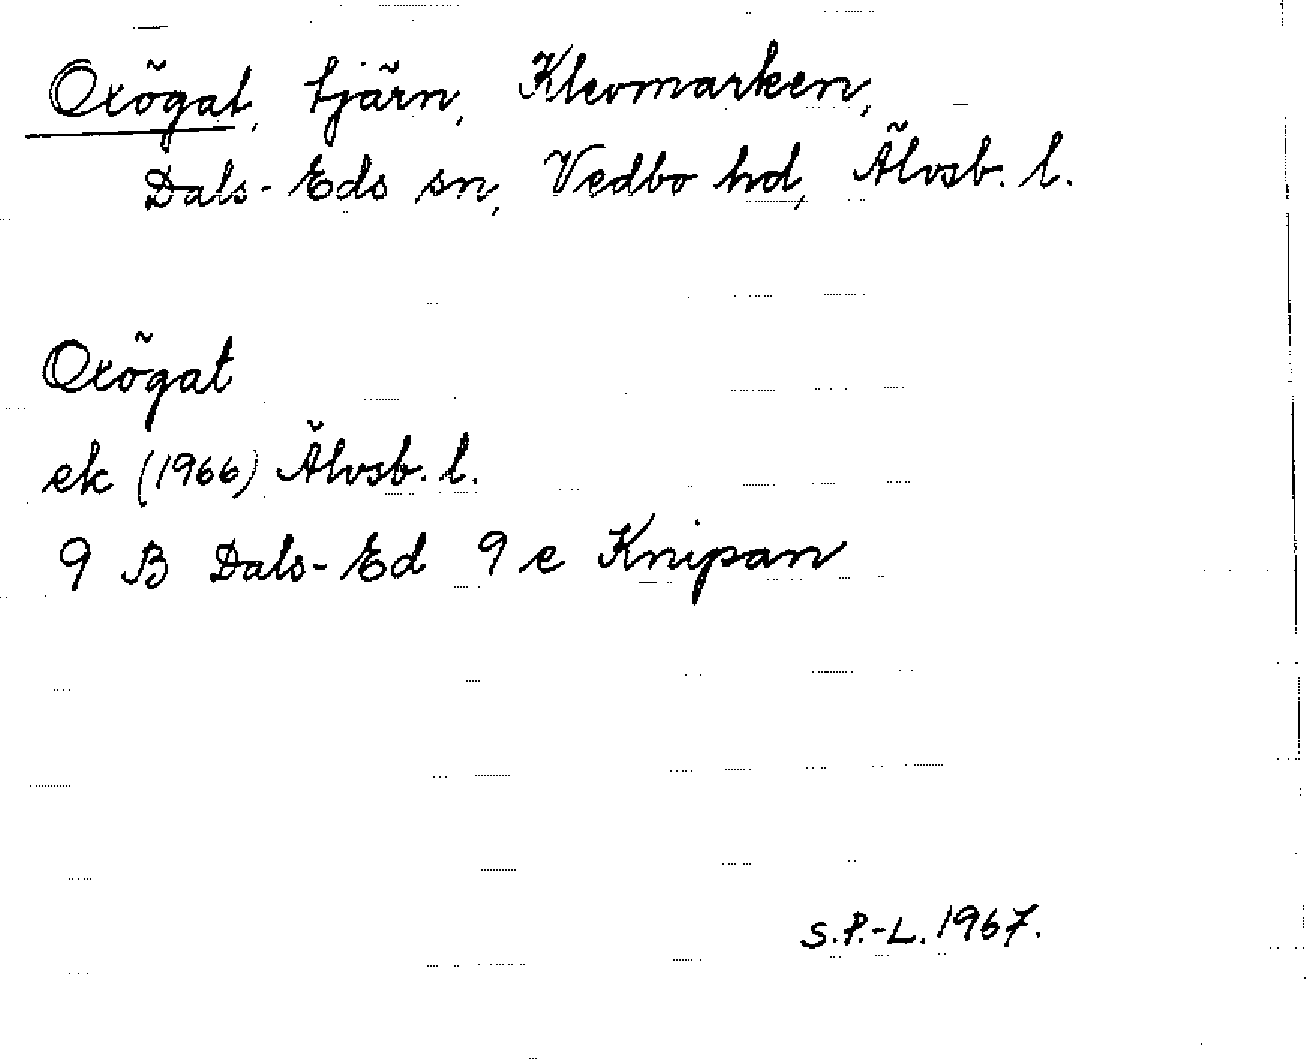 Oxögat, tjärn, Klevmarken,
Dals-Eds sn, Vedbo hd, Älvsb. l.
Oxögat
ek (1966) Älvsb. l.
9 B Dals-Ed 9 e Knipan
S.P.-L. 1967.